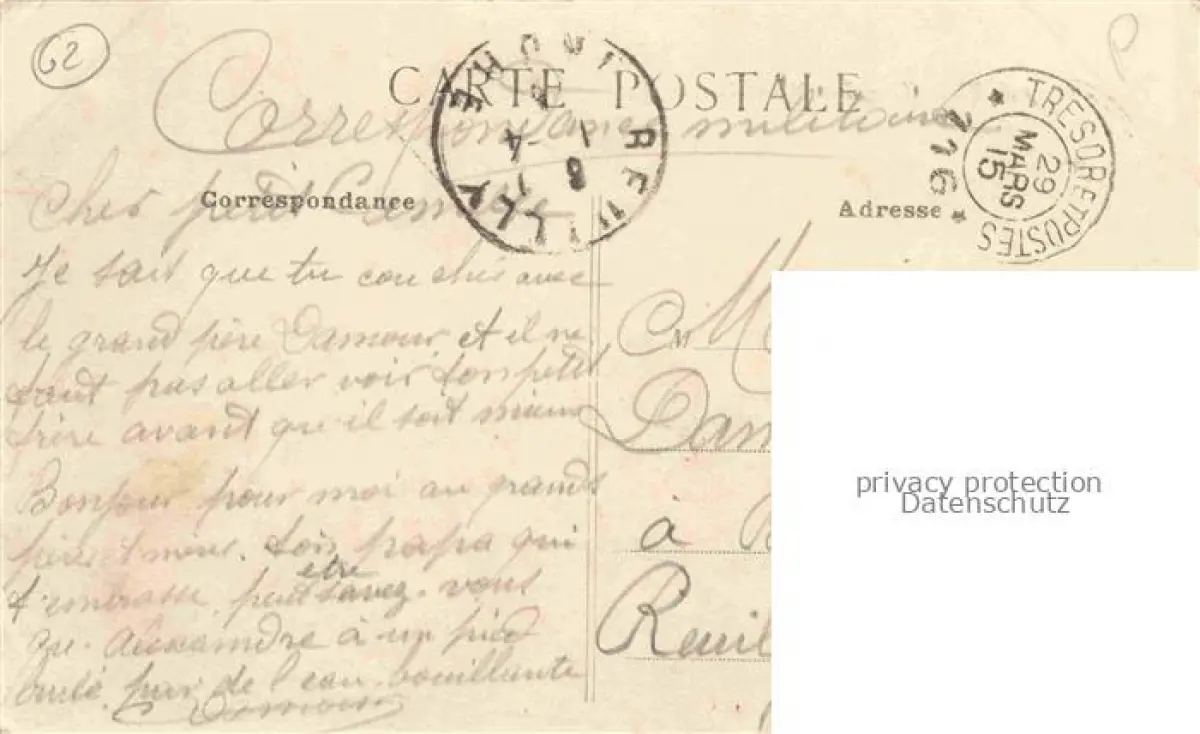 62
P
CARTE POSTALE
Correspondance militaire
REUILLY INDRE
8 4
TRESOR ET POSTES
29 MARS 15
* 116 *
Correspondance
Adresse
Cher petit
Je sait que tu couches avec
le grand père Damour et il ne
faut pas aller voir ton petit
frère avant qu'il soit mieux
Bonjour pour moi au grands
père et mère. ton papa qui
t'embrasse. peut etre savez-vous
que Alexandre à un pied
par de l'eau bouillante
Damour
M
Dam
à
Reuil
privacy protection
Datenschutz